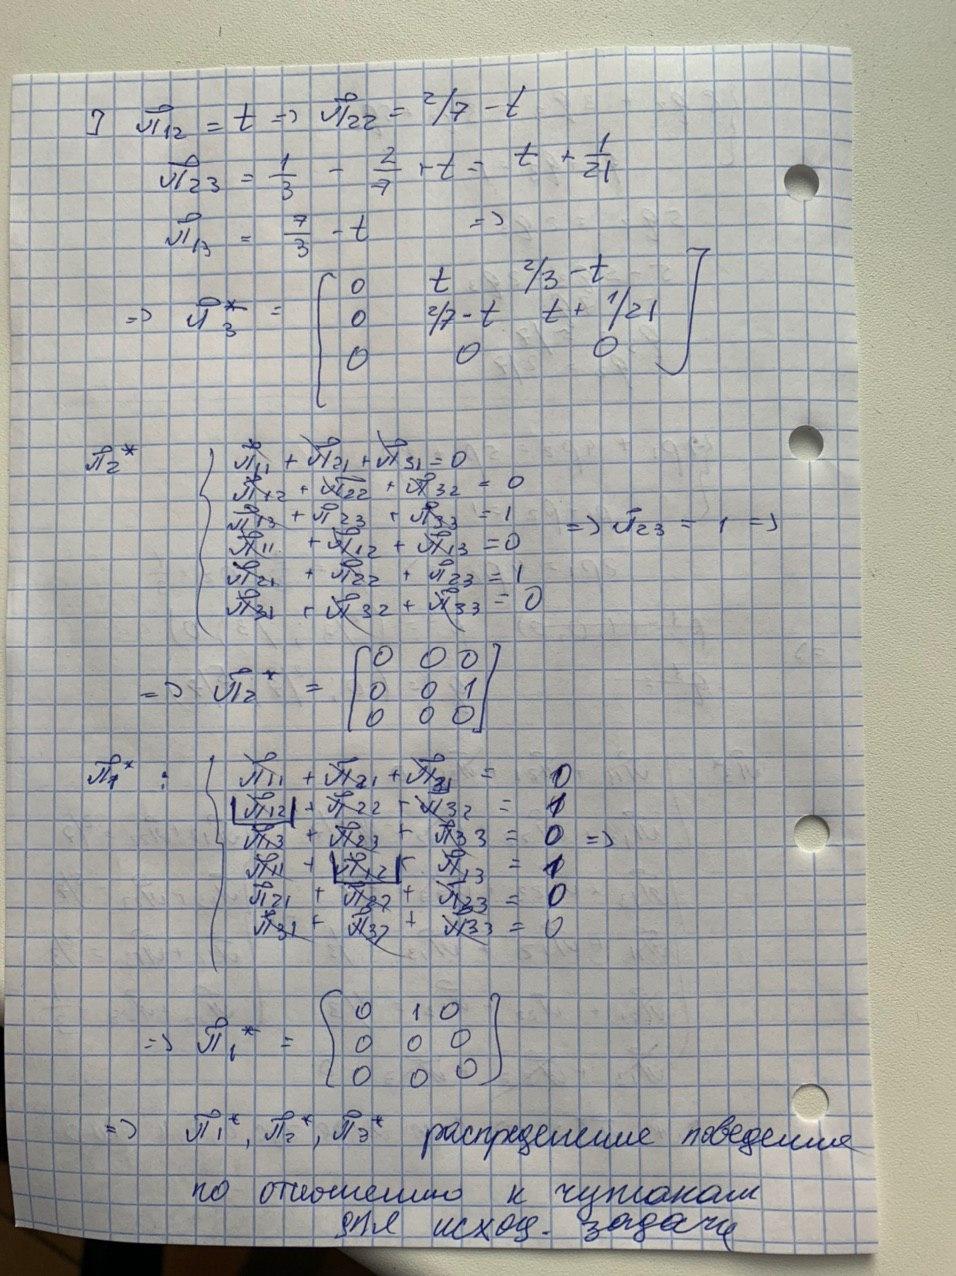 ] π̄₁₂ = t => π̄₂₂ = 2/7 - t
π̄₂₃ = 1/3 - 2/7 + t = t + 1/21
π̄₁₃ = 7/3 - t =>
=> π̄₃* = [ 0 t 2/3 - t
0 2/7 - t t + 1/21
0 0 0 ]
π̄₂* { π̄₁₁ + π̄₂₁ + π̄₃₁ = 0
π̄₁₂ + π̄₂₂ + π̄₃₂ = 0
π̄₁₃ + π̄₂₃ + π̄₃₃ = 1 => π̄₂₃ = 1 =>
π̄₁₁ + π̄₁₂ + π̄₁₃ = 0
π̄₂₁ + π̄₂₂ + π̄₂₃ = 1
π̄₃₁ + π̄₃₂ + π̄₃₃ = 0
=> π̄₂* = [ 0 0 0
0 0 1
0 0 0 ]
π̄₁* : { π̄₁₁ + π̄₂₁ + π̄₃₁ = 0
π̄₁₂ + π̄₂₂ + π̄₃₂ = 1
π̄₁₃ + π̄₂₃ + π̄₃₃ = 0 =>
π̄₁₁ + π̄₁₂ + π̄₁₃ = 1
π̄₂₁ + π̄₂₂ + π̄₂₃ = 0
π̄₃₁ + π̄₃₂ + π̄₃₃ = 0
=> π̄₁* = [ 0 1 0
0 0 0
0 0 0 ]
=> π̄₁*, π̄₂*, π̄₃* распределение поведения
по отношению к чужакам
для исход. задачи